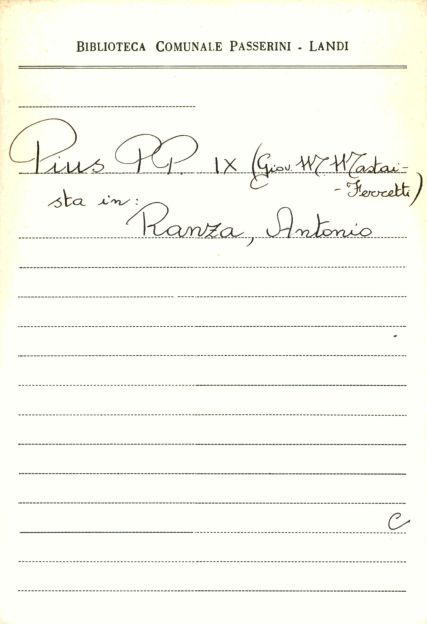 BIBLIOTECA COMUNALE PASSERINI - LANDI
Pius PP. IX (Giov. M Mastai-
-Ferretti)
sta in:
Ranza, Antonio
C